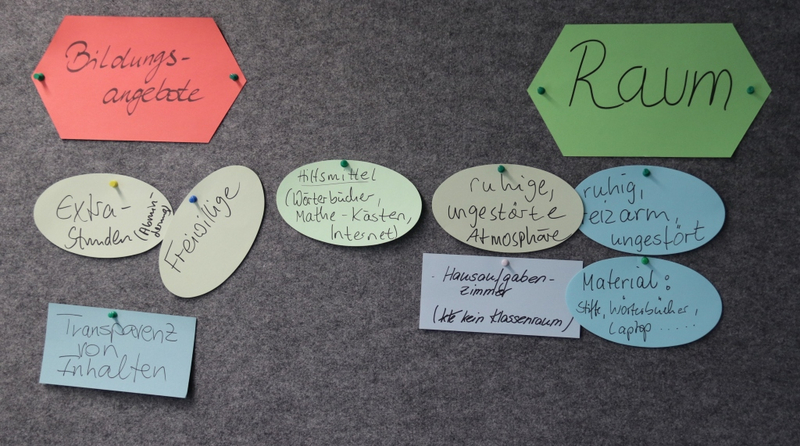 Bildungs-
angebote
Raum
Extra-
Stunden
Freiwillige
Hilfsmittel
(Wörterbücher,
Mathe-Kästen,
Internet)
ruhige,
ungestörte
Atmosphäre
ruhig,
eizarm,
ungestört
Transparenz
von
Inhalten
Hausaufgaben-
zimmer
kein Klassenraum)
Material:
Stifte, Wörterbücher,
Laptop .....